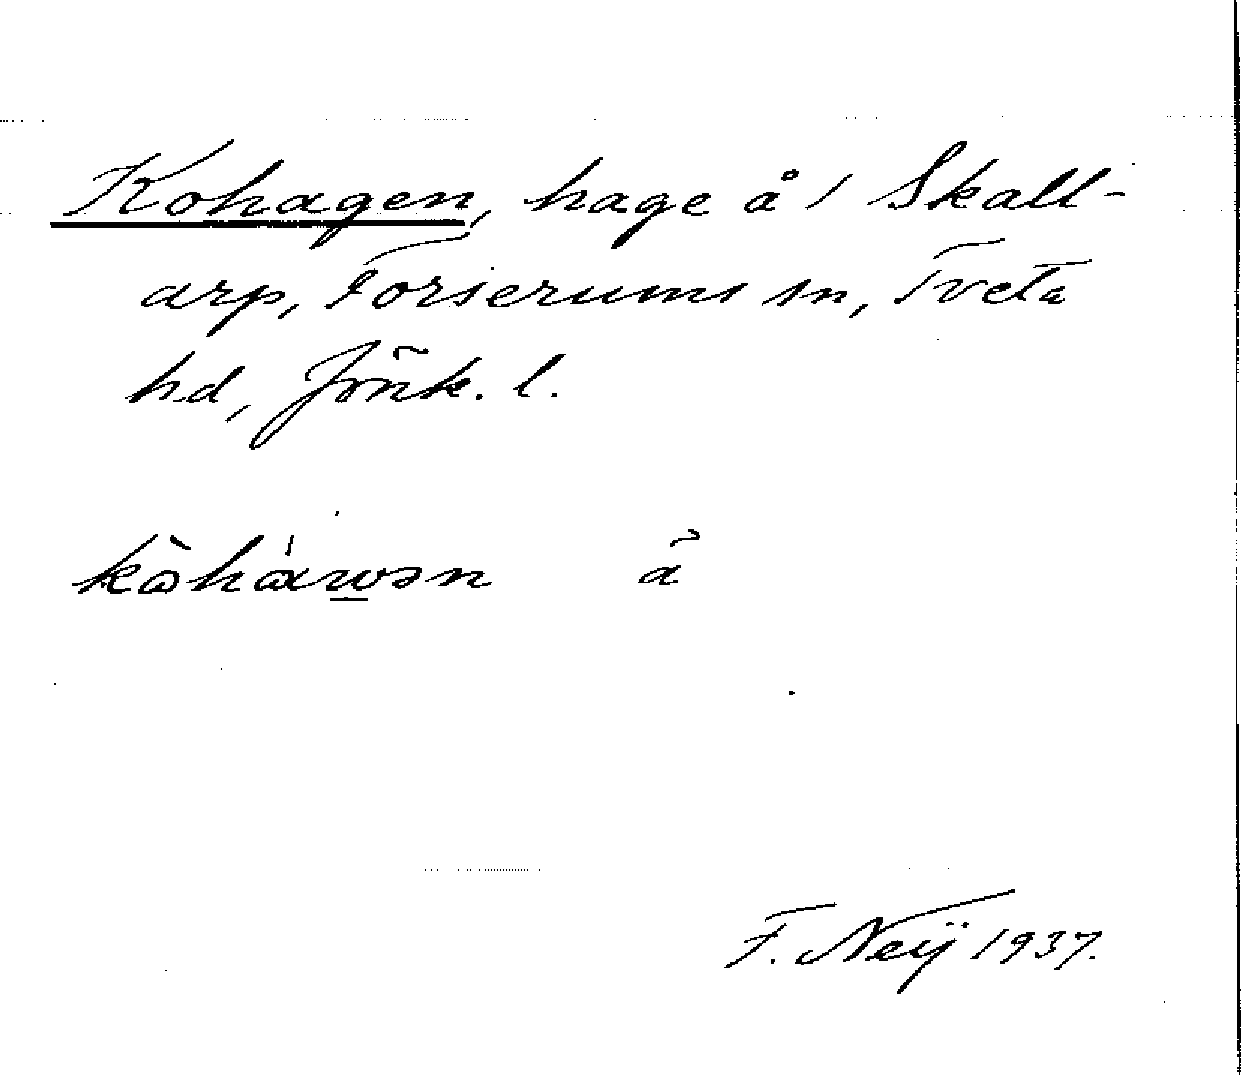 Kohagen, hage å 1 Skall-
arp, Forserums sn, Tveta
hd, Jönk. l.
kɷ̀hɑ́wən ã
F. Neij 1937.